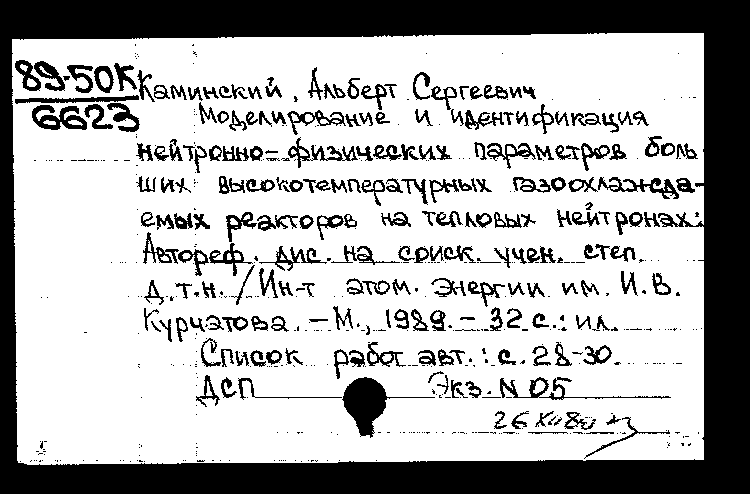 89-50К
6623
Каминский, Альберт Сергеевич
Моделирование и идентификация
нейтронно-физических параметров боль
ших высокотемпературных газоохлажда-
емых реакторов на тепловых нейтронах:
Автореф. дис. на соиск. учен. степ.
д.т.н. / Ин-т атом. энергии им. И.В.
Курчатова. – М., 1989. – 32 с.: ил.
Список работ авт.: с. 28-30.
ДСП Экз. N 05
26